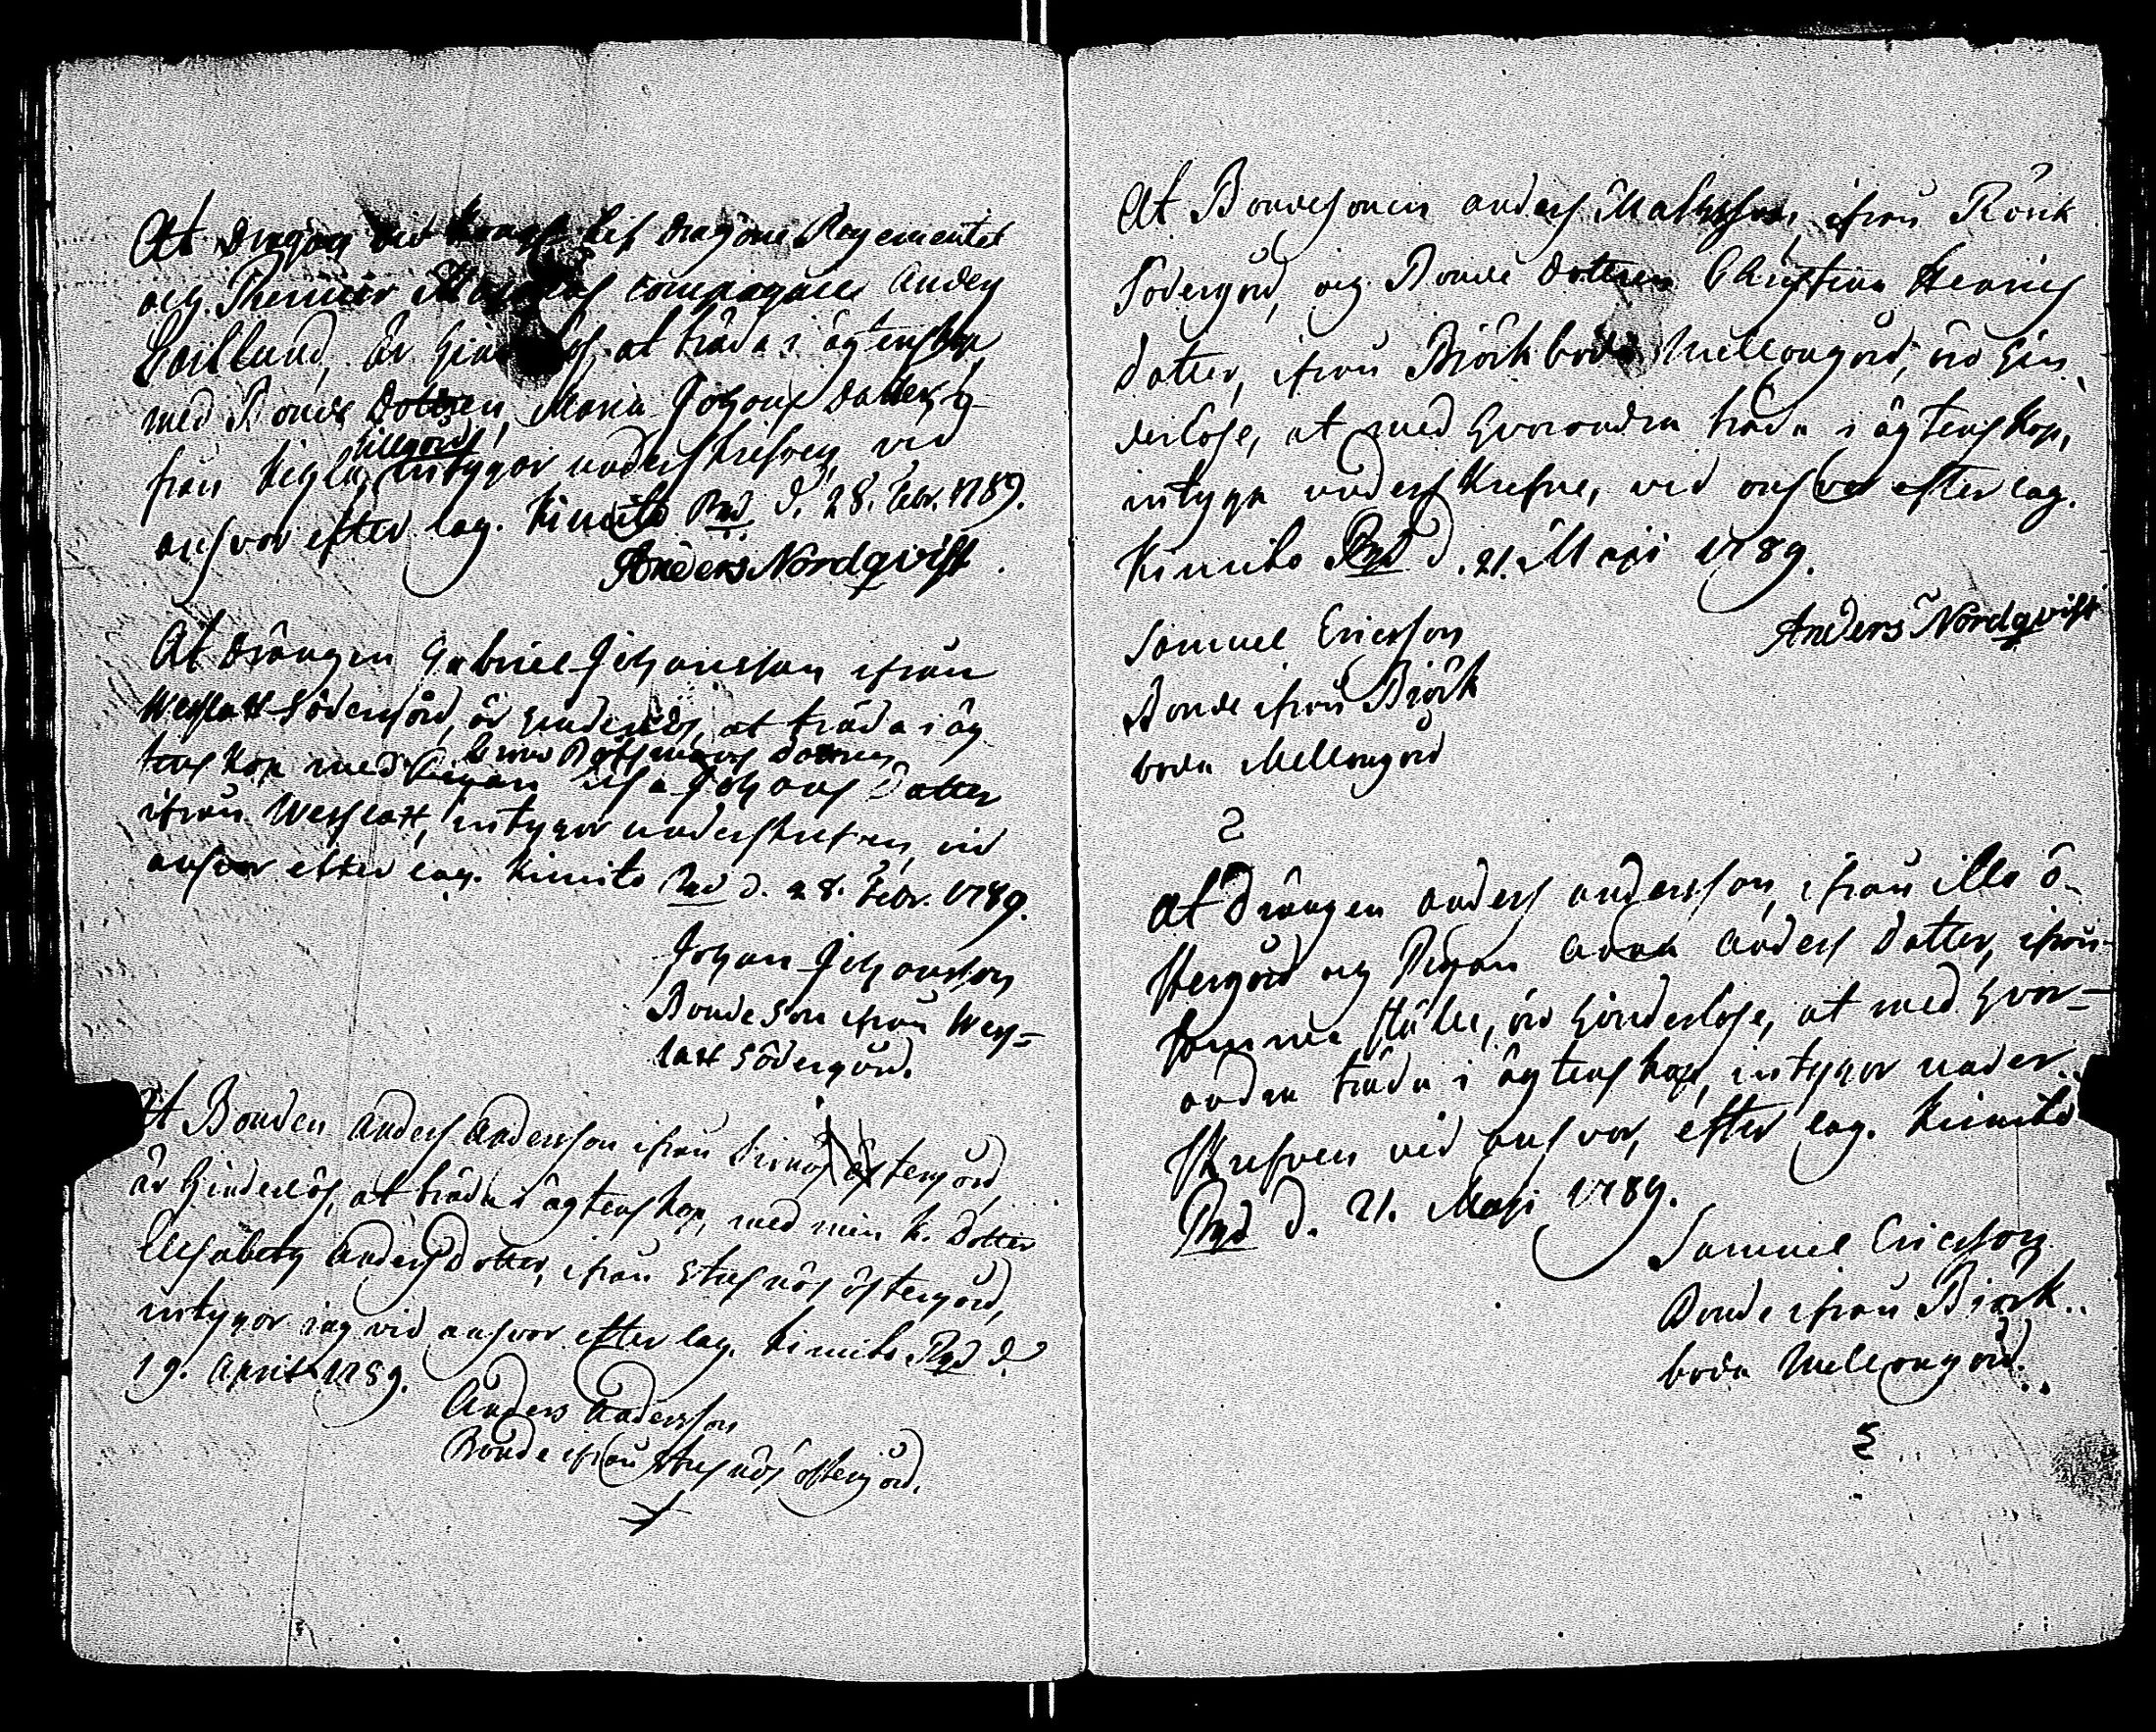 At Dragon vid Kongl Lif Dragone Regementet
och Premier Majorens Compagnie Anders
är hinderlös, at träda i ägtenskap
med Bonde Dottren, Maria Johans Dotter, i-
från Tillgård, intygar underskrefven, vid
ansvar efter lag. Kimito Pgd d. 28. Febr. 1789.
Anders Nordqvist.
At Drängen Gabriel Johansson ifrån
Westlax Södergård, är hinderlös, at träda i äg
tenskap med Pigan Lisa Johans Datter
ifrån Westlax, intygar underskrefven, vid
ansvar efter lag. Kimito Pgd d. 28. Febr. 1789.
Johan Johansson
Bonde Son ifrån West-
lax Södergård.
At Bonden Anders Andersson ifrån östergård,
är hinderlös, at träda i ägtenskap, med min k. Dotter
Elisabeth Anders Dotter, ifrån Stusnäs östergård,
intygar jag vid ansvar efter lag. Kimito Pgd d.
19. April 1789.
Anders Andersson
Bonde ifrån Stusnäs östergård.
At Bondesonen Anders Mattsson, ifrån Rövik
Södergård, och Bonde Dottren Christina Henrics
dotter, ifrån Björkboda Mellangård, äro hin-
derlöse, at med hvarandra träda i ägtenskap,
intyga underskrefne, vid ansvar efter lag.
Kimito Pgd d. 21. Maji 1789.
Anders Nordqvist
Samuel Ericsson
Bonde ifrån Björk
boda Mellangård
At Drängen Anders Andersson, ifrån Illo ö-
stergård och Pigan Anna Anders Dotter, ifrån
samma ställe, äro hinderlöse, at med hvar-
andra träda i ägtenskap, intygar under..
skrefven vid ansvar, efter lag. Kimito
Pgd d. 21. Maji 1789.
Samuel Ericsson
Bonde ifrån Björk..
boda Mellangård..